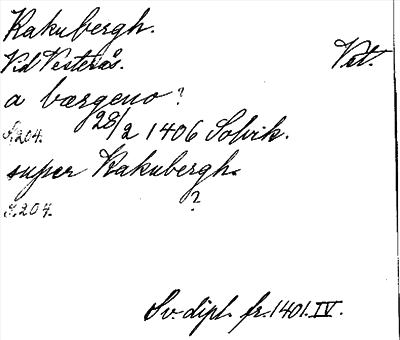 Kakubergh.
Vid Vesterås. Vst.
a bærgeno?
S. 204. 28/2 1406 Solvik.
super Kakubergh.
?
S. 204.
Sv. dipl. fr. 1401. IV.